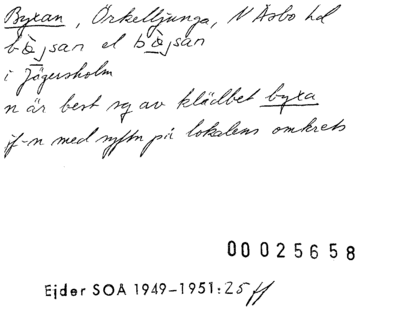 Byxan, Örkelljunga, N Åsbo hd
bø̀jsan el bø̀jsan
i Jägersholm
n är best sg av klädbet byxa
jf-n med syftn på lokalens omkrets
00025658
Ejder SOÅ 1949-1951:25 ff